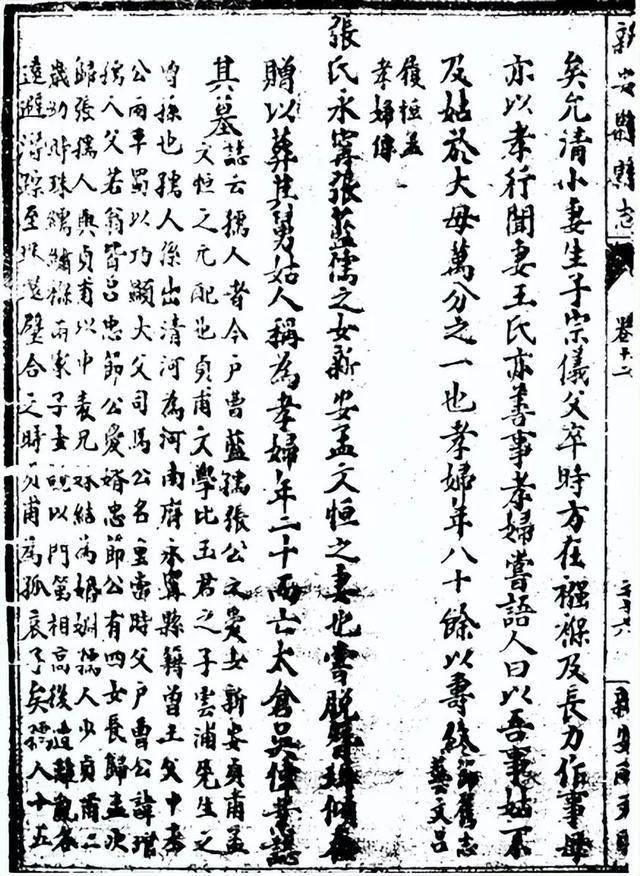 矣允清小妻生子宗儀父卒時方在襁褓及長力作事母
亦以孝行聞妻王氏亦善事孝婦嘗語人曰以吾事姑不
及姑於大母萬分之一也孝婦年八十餘以壽終
舊志
藝文呂
履恒孟
孝婦傳
張氏永寧張藍孺之女新安孟文恒之妻也嘗脫簪珥傾
贈以葬其舅姑人稱為孝婦年二十而亡太倉吳偉業誌
其墓
誌云孺人者今戶曹藍孺張公之愛女新安貞甫孟
文恒之元配也貞甫文學比玉君之子雲浦先生之
曾孫也孺人係出清河為河南府永寧縣籍曾王父中孝
公兩車蜀以巧顯大父司馬公名重當時父戶曹公諱
孺人父若翁皆呂忠節公愛婿忠節公有四女長歸孟次
歸張孺人與貞甫以中表兄妹結為婚姻孺人少貞甫二
歲幼時珠繡襁褓兩家子女既以門第相高後遭難各
遠避得踪至珠還璧合之時貞甫為孤哀子矣孺人十五
新安縣志
卷十二